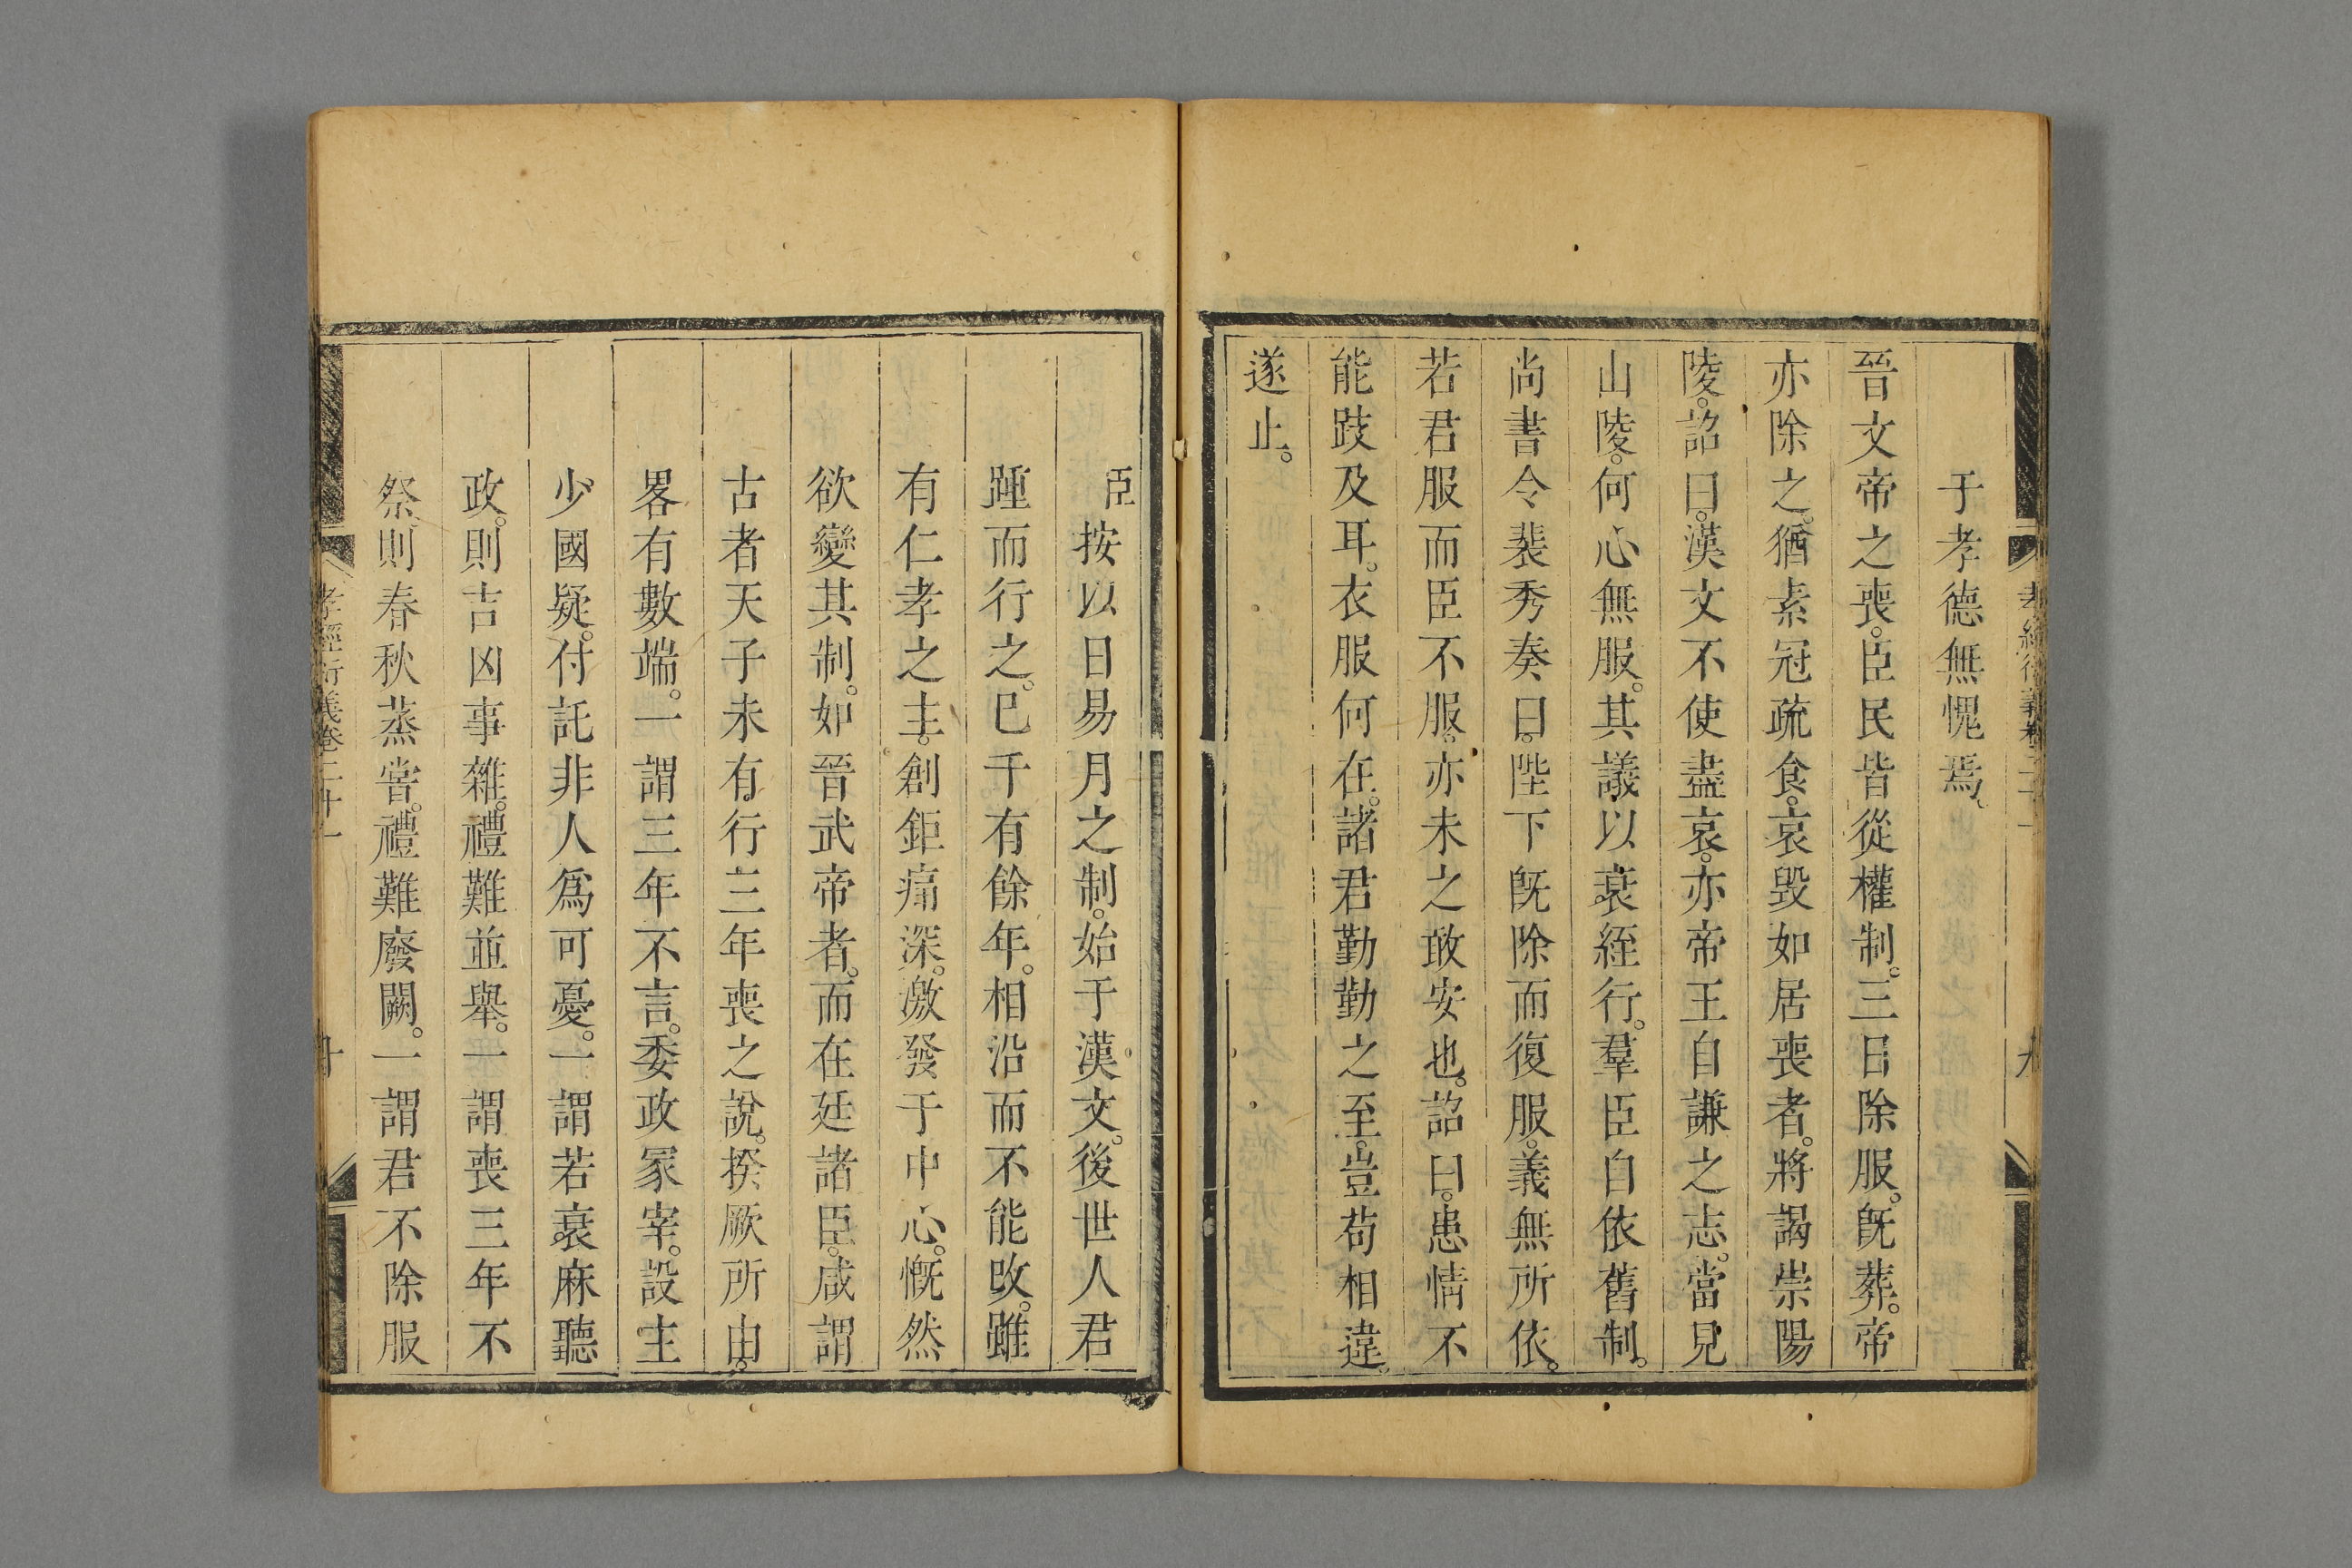 于孝德無愧焉。
晉文帝之喪。臣民皆從權制。三日除服。旣葬。帝
亦除之。猶素冠疏食。哀毀如居喪者。將謁崇陽
陵。詔曰。漢文不使盡哀。亦帝王自謙之志。當見
山陵。何心無服。其議以衰絰行。羣臣自依舊制。
尚書令裴秀奏曰。陛下旣除而復服。義無所依。
若君服而臣不服。亦未之敢安也。詔曰。患情不
能跂及耳。衣服何在。諸君勤勤之至。豈苟相違。
遂止。
臣按以日易月之制。始于漢文。後世人君
踵而行之。已千有餘年。相沿而不能改。雖
有仁孝之主。創鉅痛深。激發于中心。慨然
欲變其制。如晉武帝者。而在廷諸臣。咸謂
古者天子未有行三年喪之說。揆厥所由。
畧有數端。一謂三年不言。委政冢宰。設主
少國疑。付託非人爲可憂。一謂若衰麻聽
政。則吉凶事雜。禮難並舉。一謂喪三年不
祭。則春秋蒸嘗。禮難廢闕。一謂君不除服
孝經衍義卷二十一
十